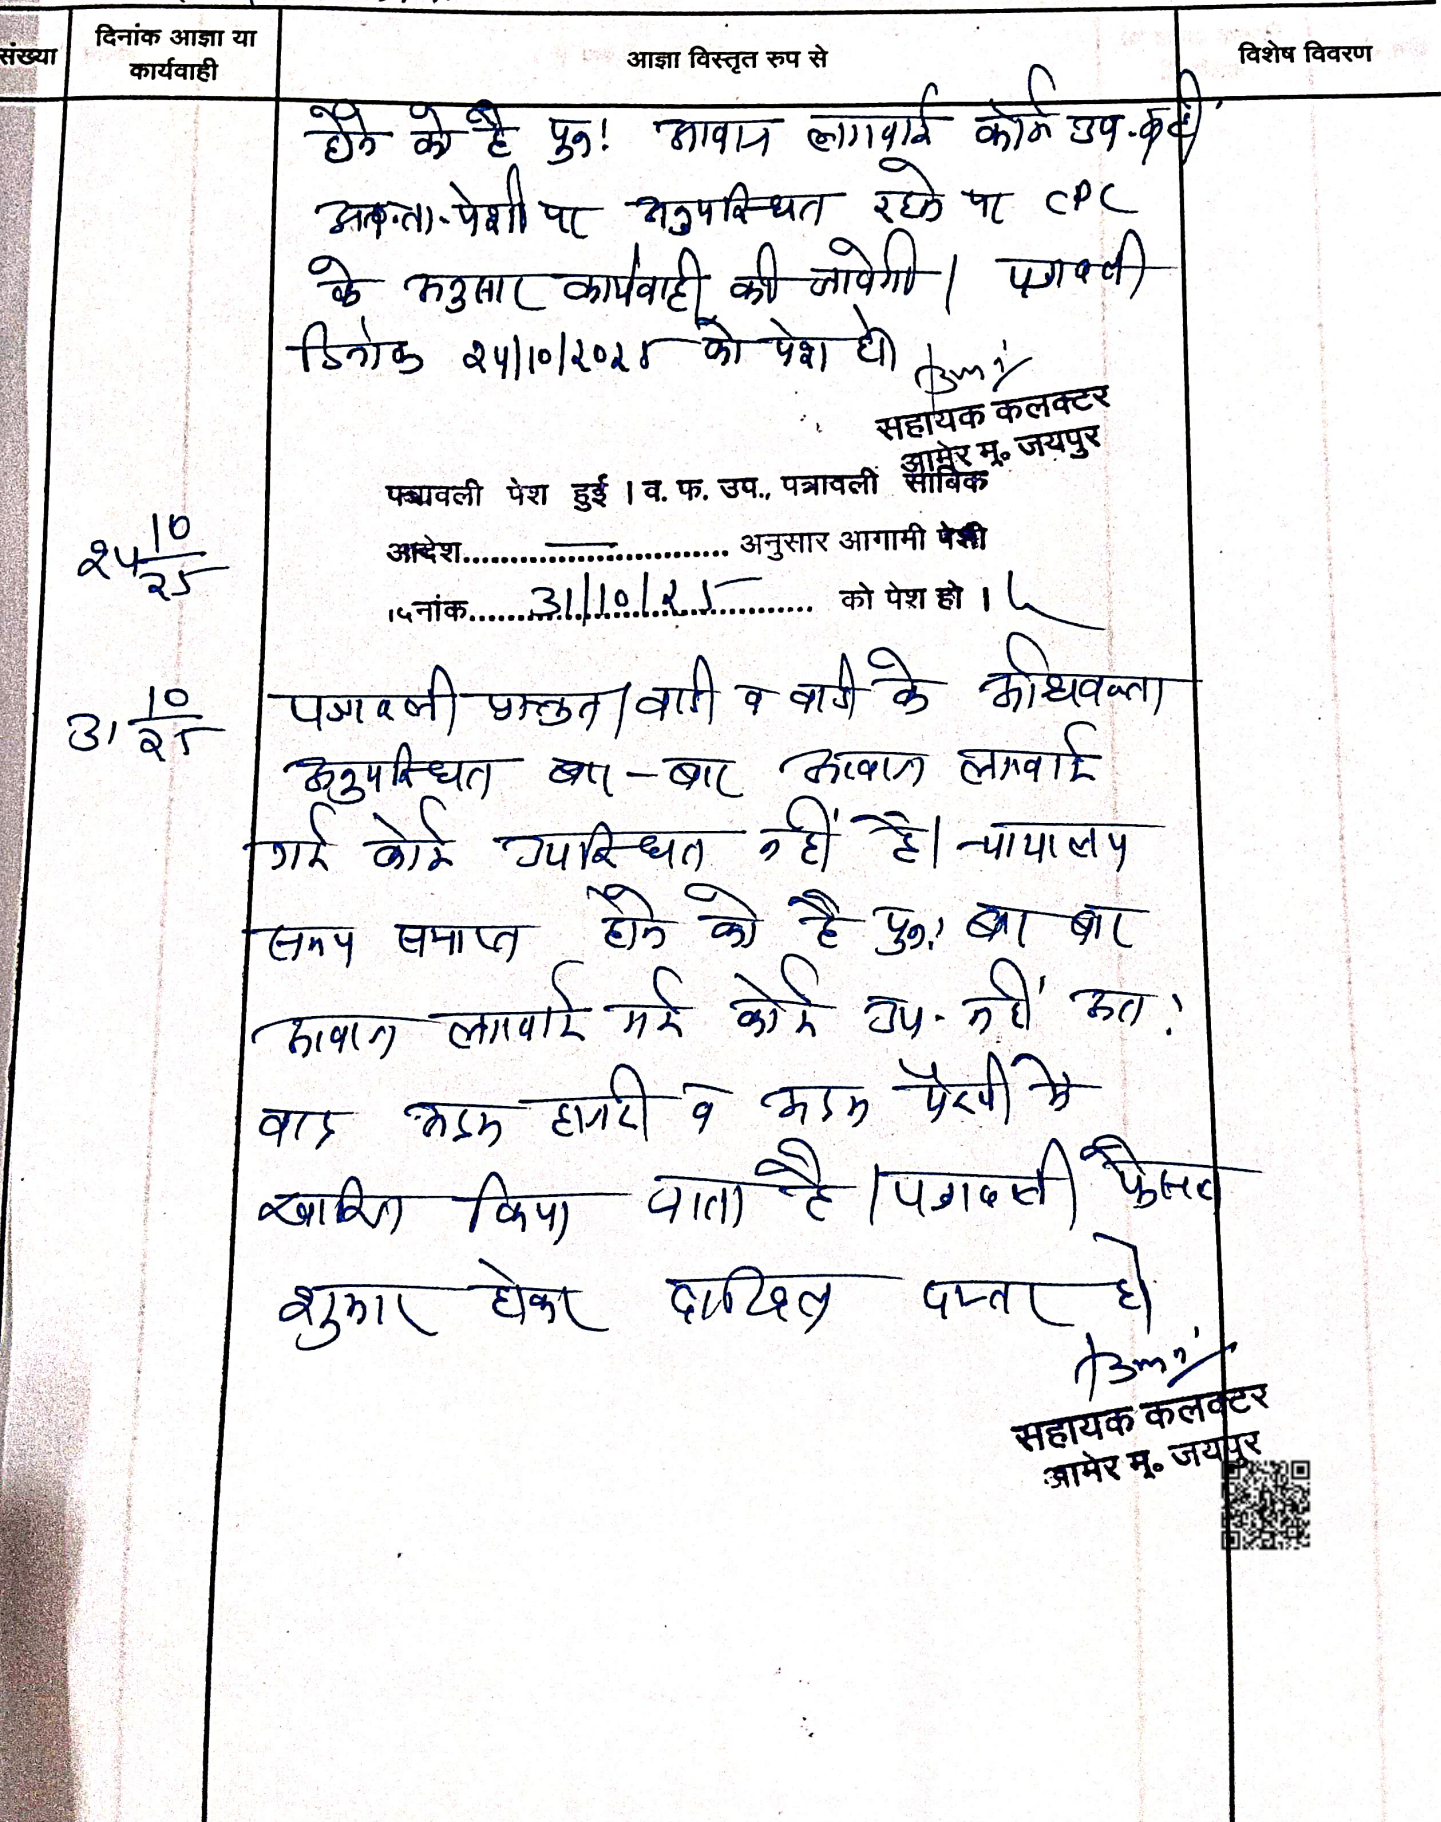 संख्या
दिनांक आज्ञा या
कार्यवाही
आज्ञा विस्तृत रुप से
विशेष विवरण
होने को है पुन: आवाज लगवाई कोई उप. नहीं
पेशी पर अनुपस्थित रहने पर CPC
के अनुसार कार्यवाही की जावेगी। पत्रावली
दिनांक २४/10/२०२५ को पेश हो
सहायक कलक्टर
आमेर मु० जयपुर
पत्रावली पेश हुई । व. फ. उप., पत्रावली साबिक
२४ 10/२५
आदेश.............................. अनुसार आगामी पेशी
दिनांक......31/10/२५...... को पेश हो ।
31 10/२५
पत्रावली प्रस्तुत। वादी व वादी के अधिवक्ता
अनुपस्थित बार-बार आवाज लगवाई
गई कोई उपस्थित नहीं है। न्यायालय
समय समाप्त होने को है पुन: बार बार
आवाज लगवाई गई कोई उप. नहीं अत:
वाद अदम हाजरी व अदम पैरवी मे
खारिज किया जाता है। पत्रावली फैसल
शुमार होकर दाखिल दफ्तर हो
सहायक कलक्टर
आमेर मु० जयपुर